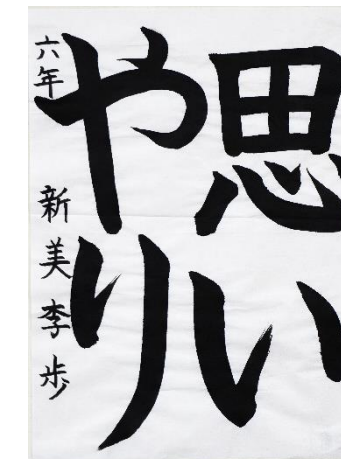 思い
やり
六年 新美李歩